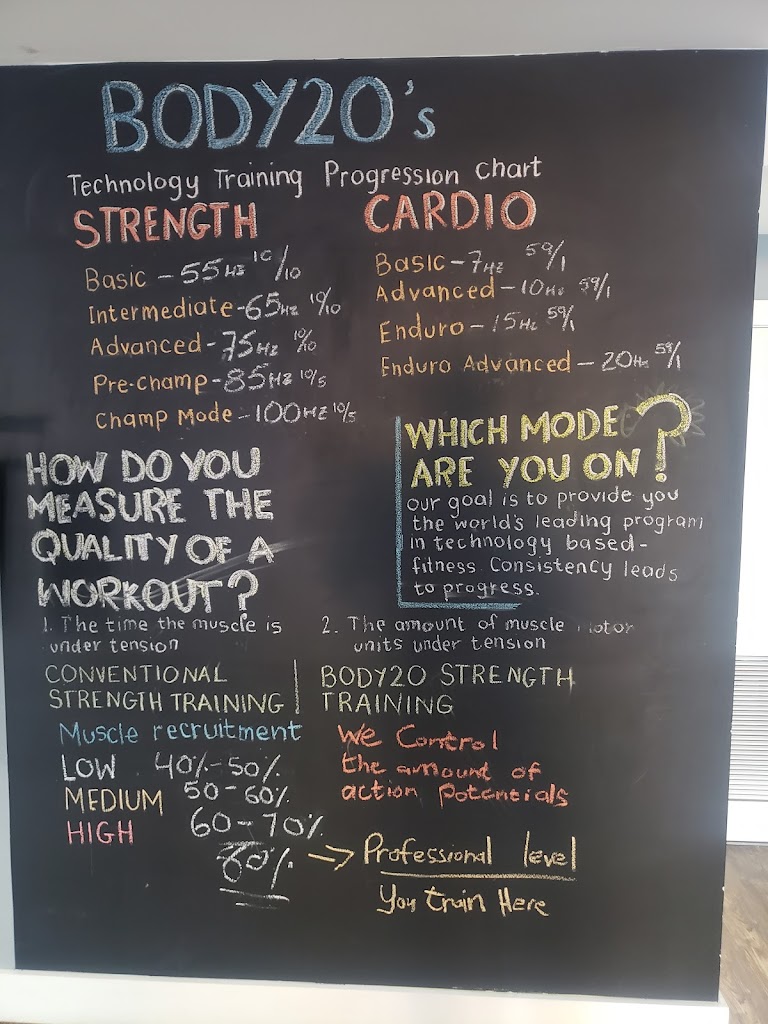 BODY20's
Technology Training Progression Chart
STRENGTH
Basic - 55Hz 10/10
Intermediate - 65Hz 10/10
Advanced - 75Hz 10/10
Pre-champ - 85Hz 10/5
Champ Mode - 100Hz 10/5
CARDIO
Basic - 7Hz 59/1
Advanced - 10Hz 59/1
Enduro - 15Hz 59/1
Enduro Advanced - 20Hz 59/1
WHICH MODE
ARE YOU ON?
Our goal is to provide you
the world's leading program
in technology based-
fitness. Consistency leads
to progress.
HOW DO YOU
MEASURE THE
QUALITY OF A
WORKOUT?
1. The time the muscle is
under tension
2. The amount of muscle motor
units under tension
CONVENTIONAL
STRENGTH TRAINING
Muscle recruitment
LOW 40%-50%
MEDIUM 50-60%
HIGH 60-70%
BODY20 STRENGTH
TRAINING
We Control
the amount of
action potentials
80% -> Professional level
You train Here